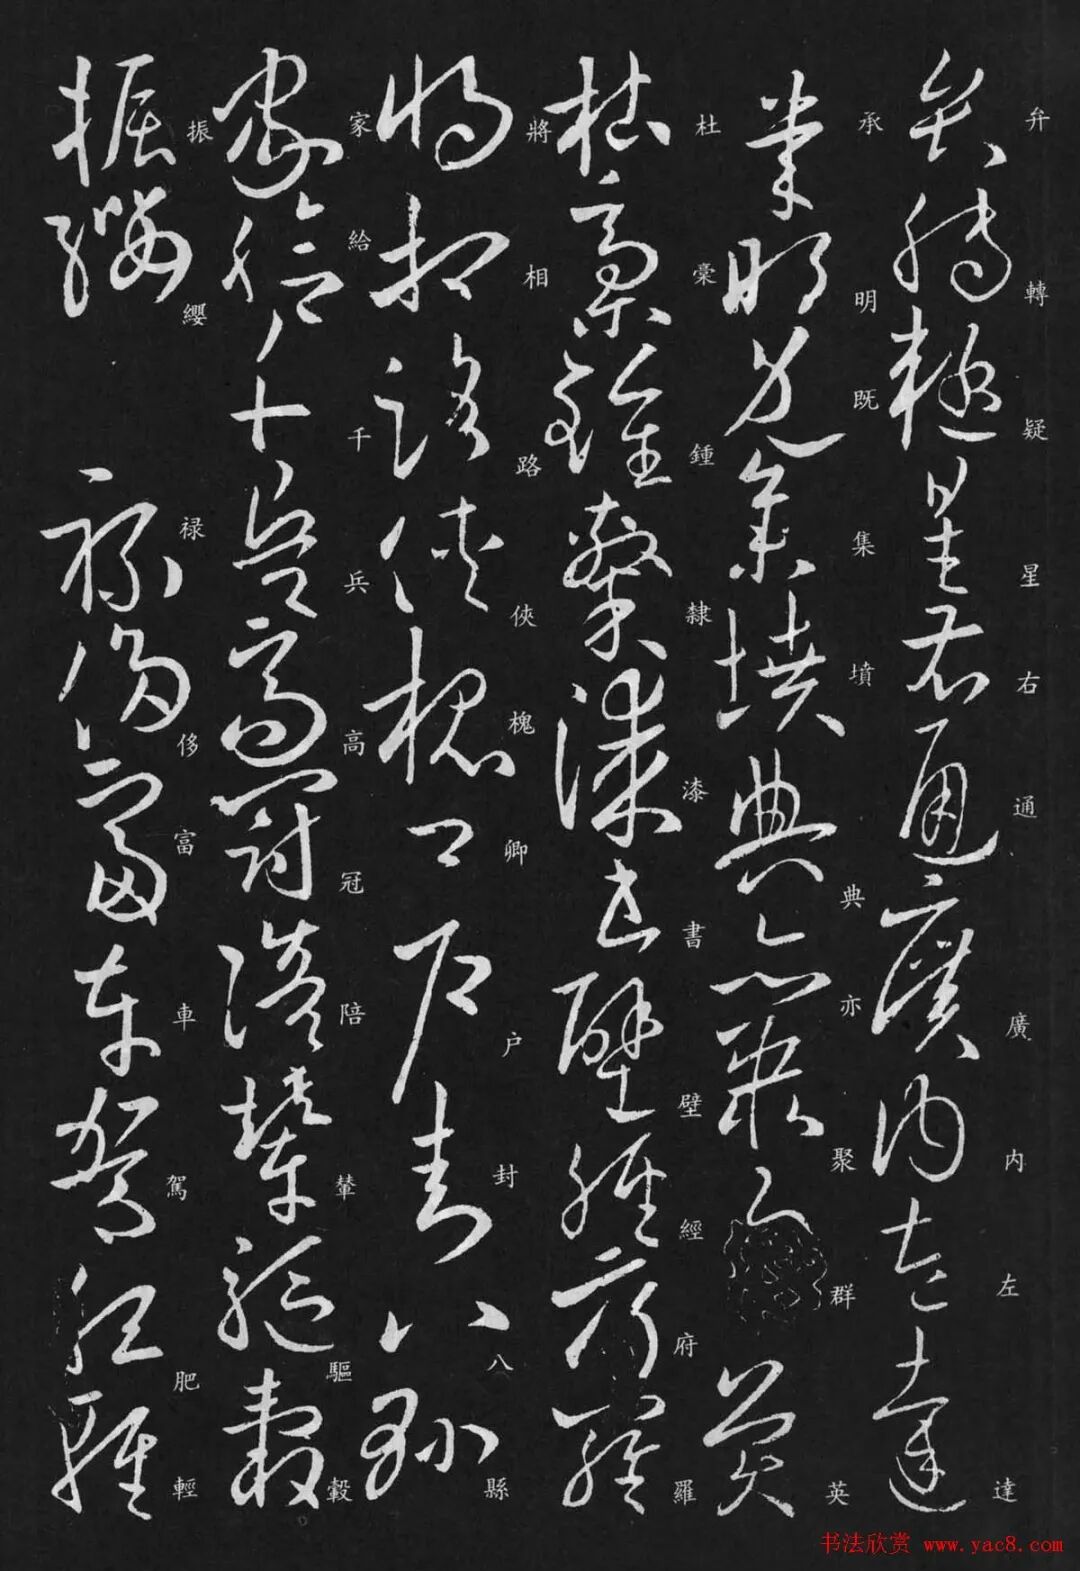 弁轉疑星右通廣内左達
承明既集墳典亦聚群英
杜稾鍾隸漆書壁經府羅
將相路俠槐卿户封八縣
家給千兵高冠陪輦驅轂
振纓禄侈富車駕肥輕
书法欣赏 www.yac8.com